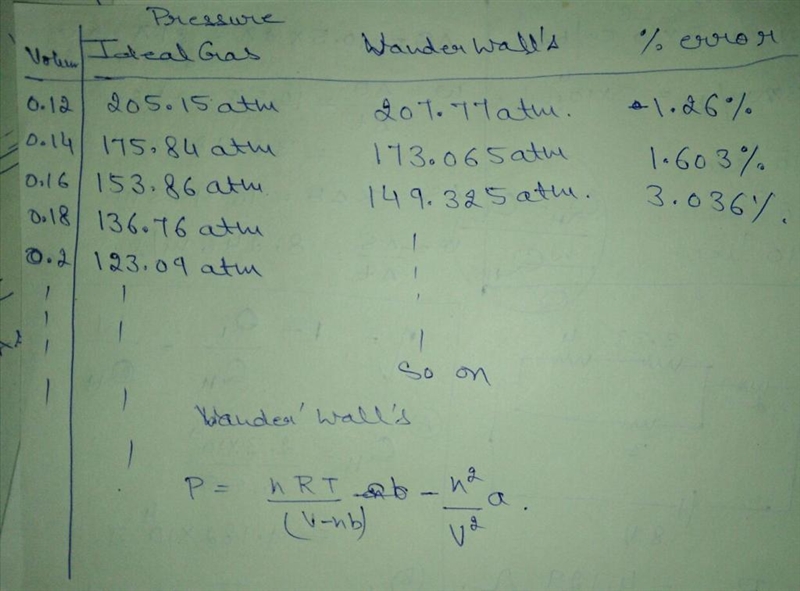 Pressure
Volum Ideal Gas Wander Wall's % error
0.12 205.15 atm 207.77 atm. -1.26%
0.14 175.84 atm 173.065 atm 1.603%
0.16 153.86 atm 149.325 atm. 3.036%.
0.18 136.76 atm
0.2 123.09 atm
So on
Wander' Wall's
P = nRT/(V-nb) - n²/V² a.